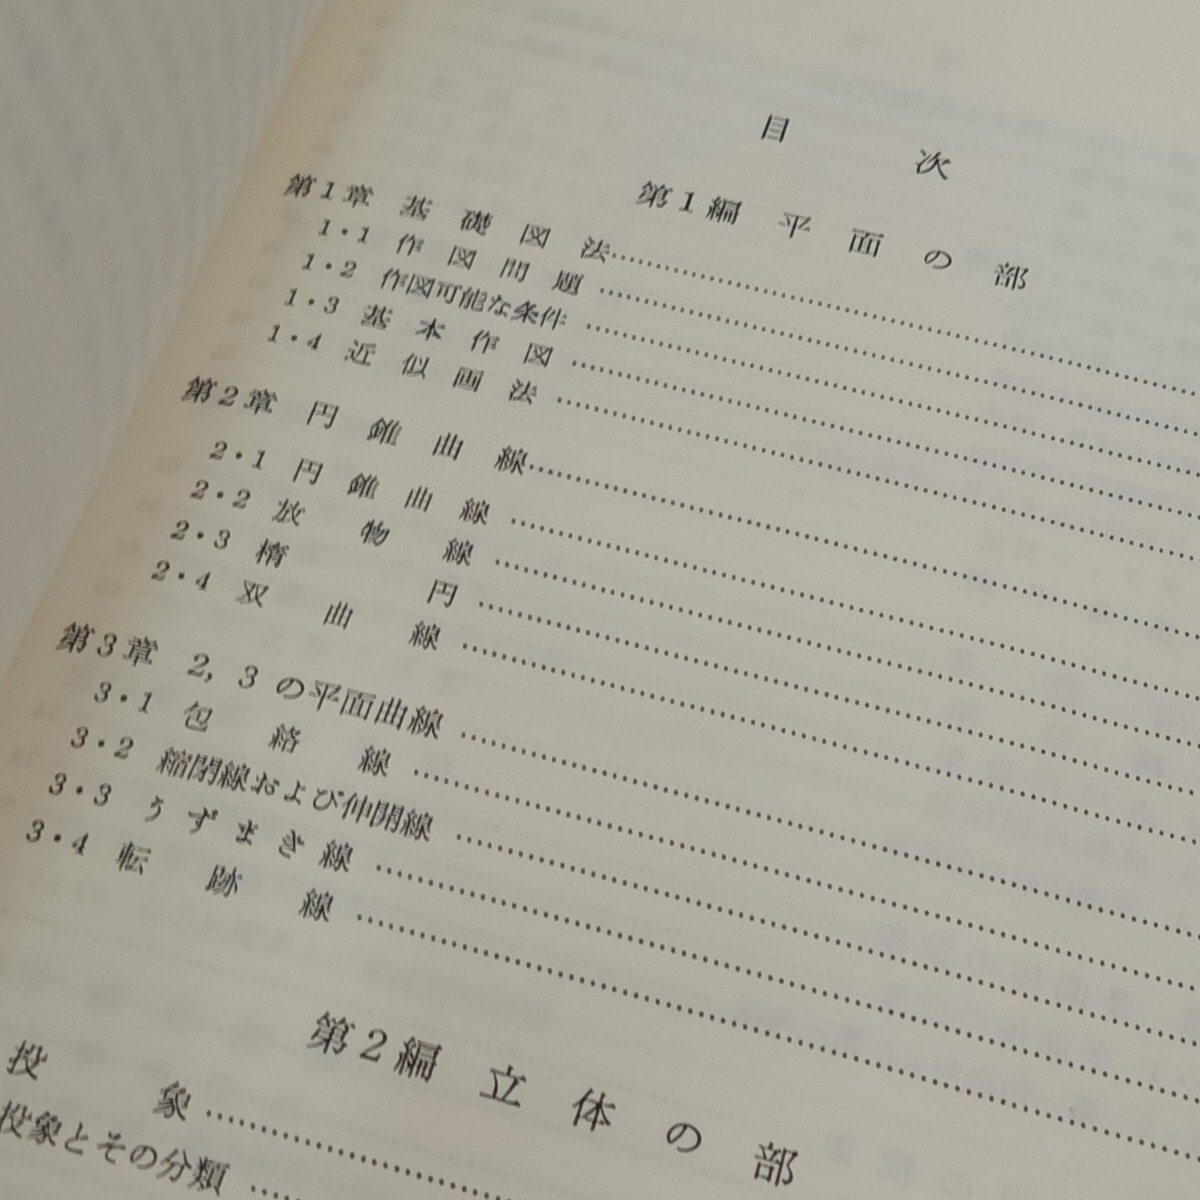 目次
第1編 平面の部
第1章 基礎図法
1・1 作図問題
1・2 作図可能な条件
1・3 基本作図
1・4 近似画法
第2章 円錐曲線
2・1 円錐曲線
2・2 放物線
2・3 楕円
2・4 双曲線
第3章 2, 3の平面曲線
3・1 包絡線
3・2 縮閉線および伸開線
3・3 うずまき線
3・4 転跡線
第2編 立体の部
投象
投象とその分類